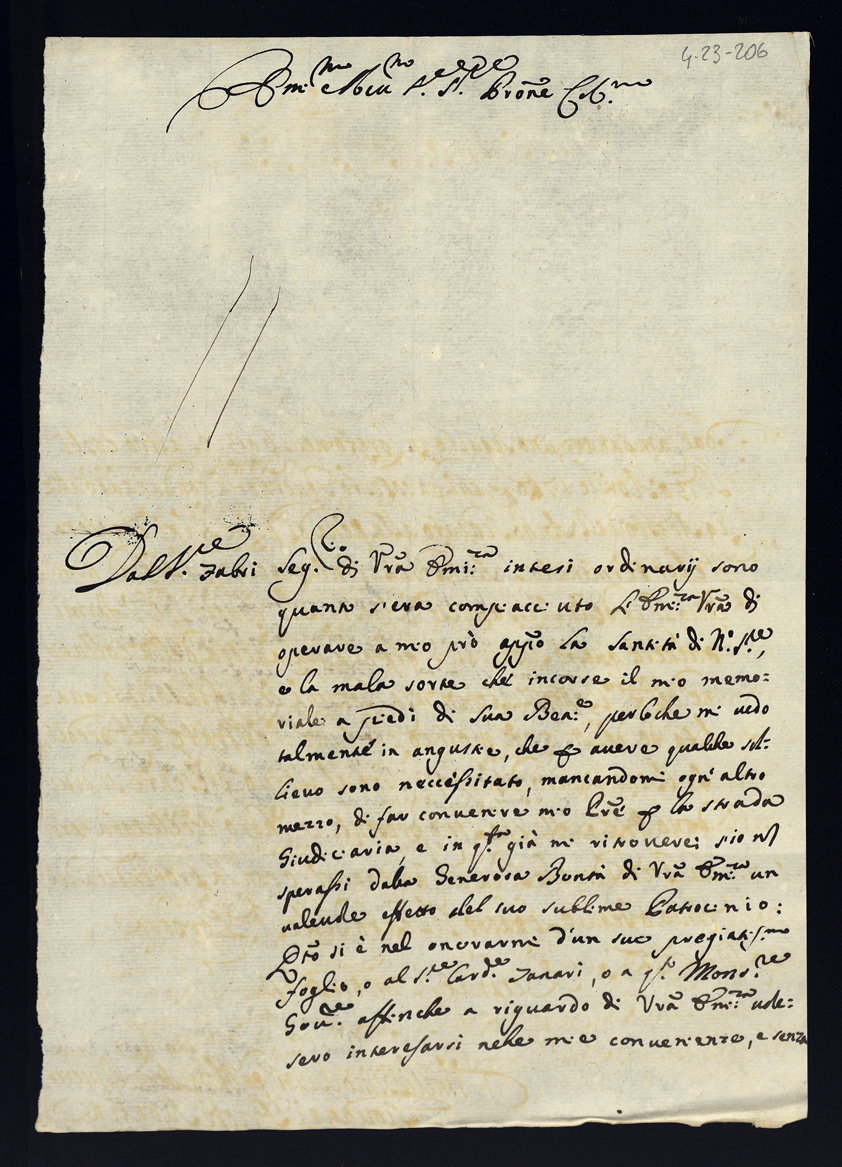 4-23-206
Em.mo e Rev.mo S.re P.rone Col.mo
Dal S.re Zabri Seg.rio di Vrã Emi:za intesi ordinarij sono
quanto s'era compiacciuto l'Em:za Vrã di
operare a mio prò app̃o la Santità di N.ro S.re,
e la mala sorte che incorse il mio memo=
riale a piedi di sua Bea:e, perloche mi vedo
talmente in angustie, che p avere qualche sol=
lievo sono neccessitato, mancandomi ogn'altro
mezzo, di far convenire mio Prẽ p la strada
Giudiciaria, e in q.sta già mi ritroverei s'io nõ
sperassi dalla Generosa Bontà di Vrã Em:za un
valevole effetto del suo sublime Patrocinio:
Q.sto si è nel onorarmi d'un suo pregiatis.mo
foglio, o al S.re Card.e Zanari, o a q.sto Mons.re
Gov.re affinche a riguardo di Vrã Em:za vole=
sero interessarsi nelle mie convenienze, e senza